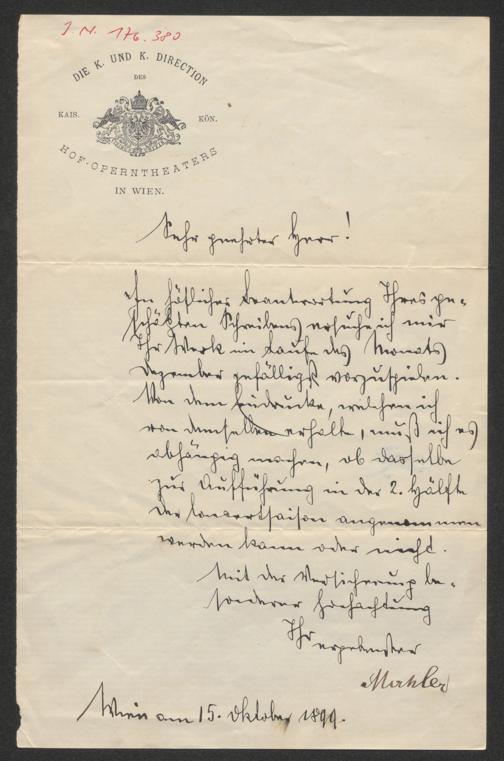 J. N. 176.380
DIE K. UND K. DIRECTION
DES
KAIS. KÖN.
HOF-OPERNTHEATERS
IN WIEN.
Sehr geehrter Herr!
In höflicher Beantwortung Ihres ge-
schätzten Schreibens ersuche ich mir
Ihr Werk im Laufe des Monats
Dezember gefälligst vorzuspielen.
Von dem Eindrucke, welchen ich
von demselben erhalte, muß ich es
abhängig machen, ob dasselbe
zur Aufführung in der 2. Hälfte
der Concertsaison angenommen
werden kann oder nicht.
Mit der Versicherung be-
sonderer Hochachtung
Ihr ergebenster
Mahler
Wien am 15. Oktober 1899.